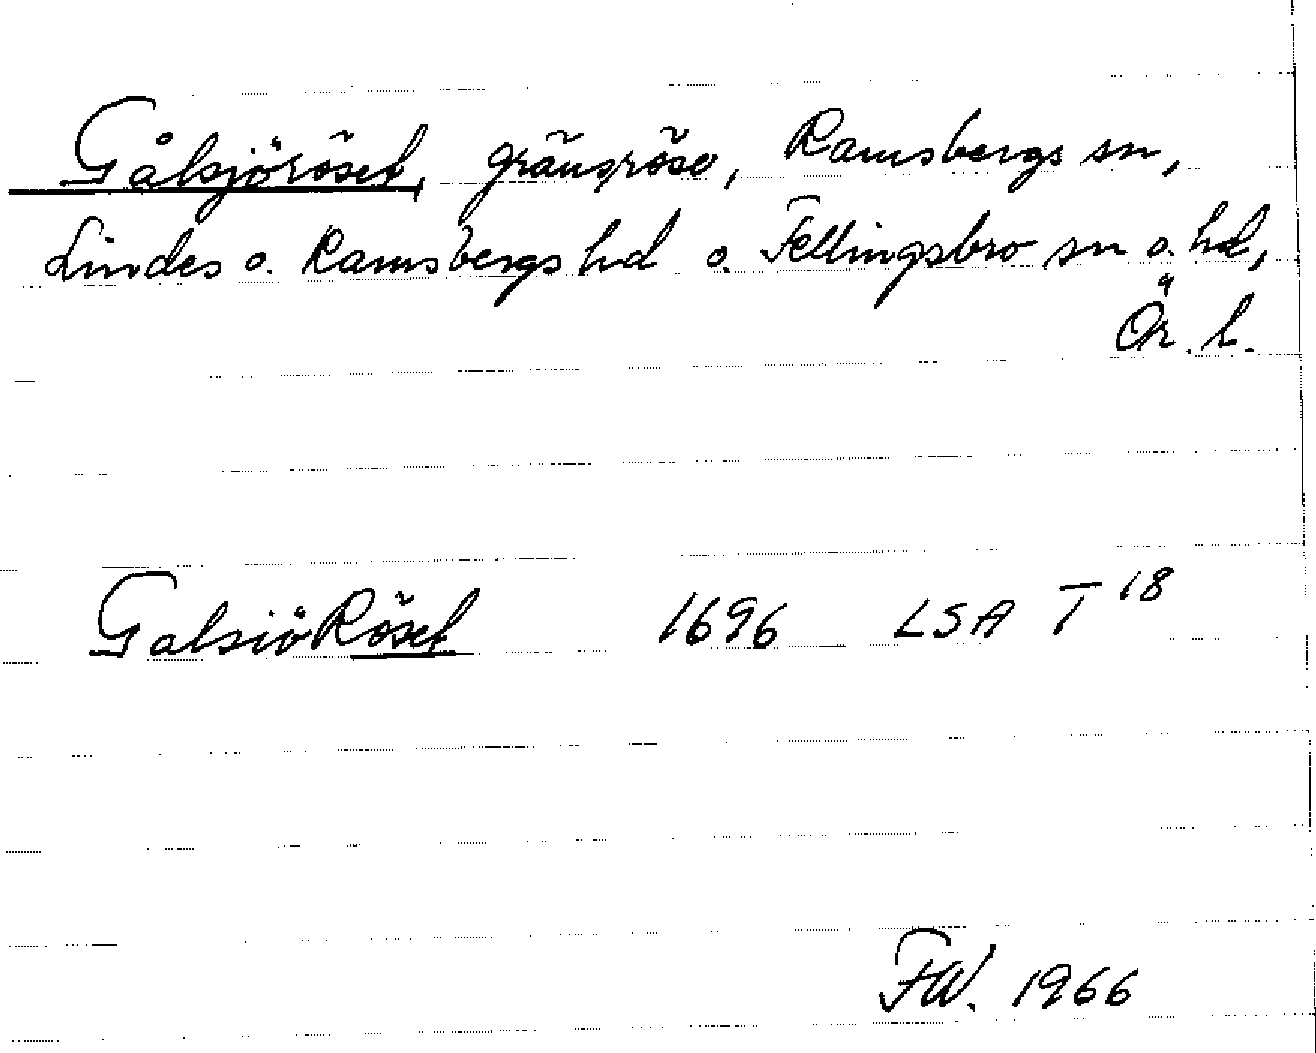 Gålsjöröset, gränsröse, Ramsbergs sn,
Lindes o. Ramsbergs hd o. Fellingsbro sn o. hd,
Ör. l.
GalsiöRöset 1696 LSA T 18
FW. 1966